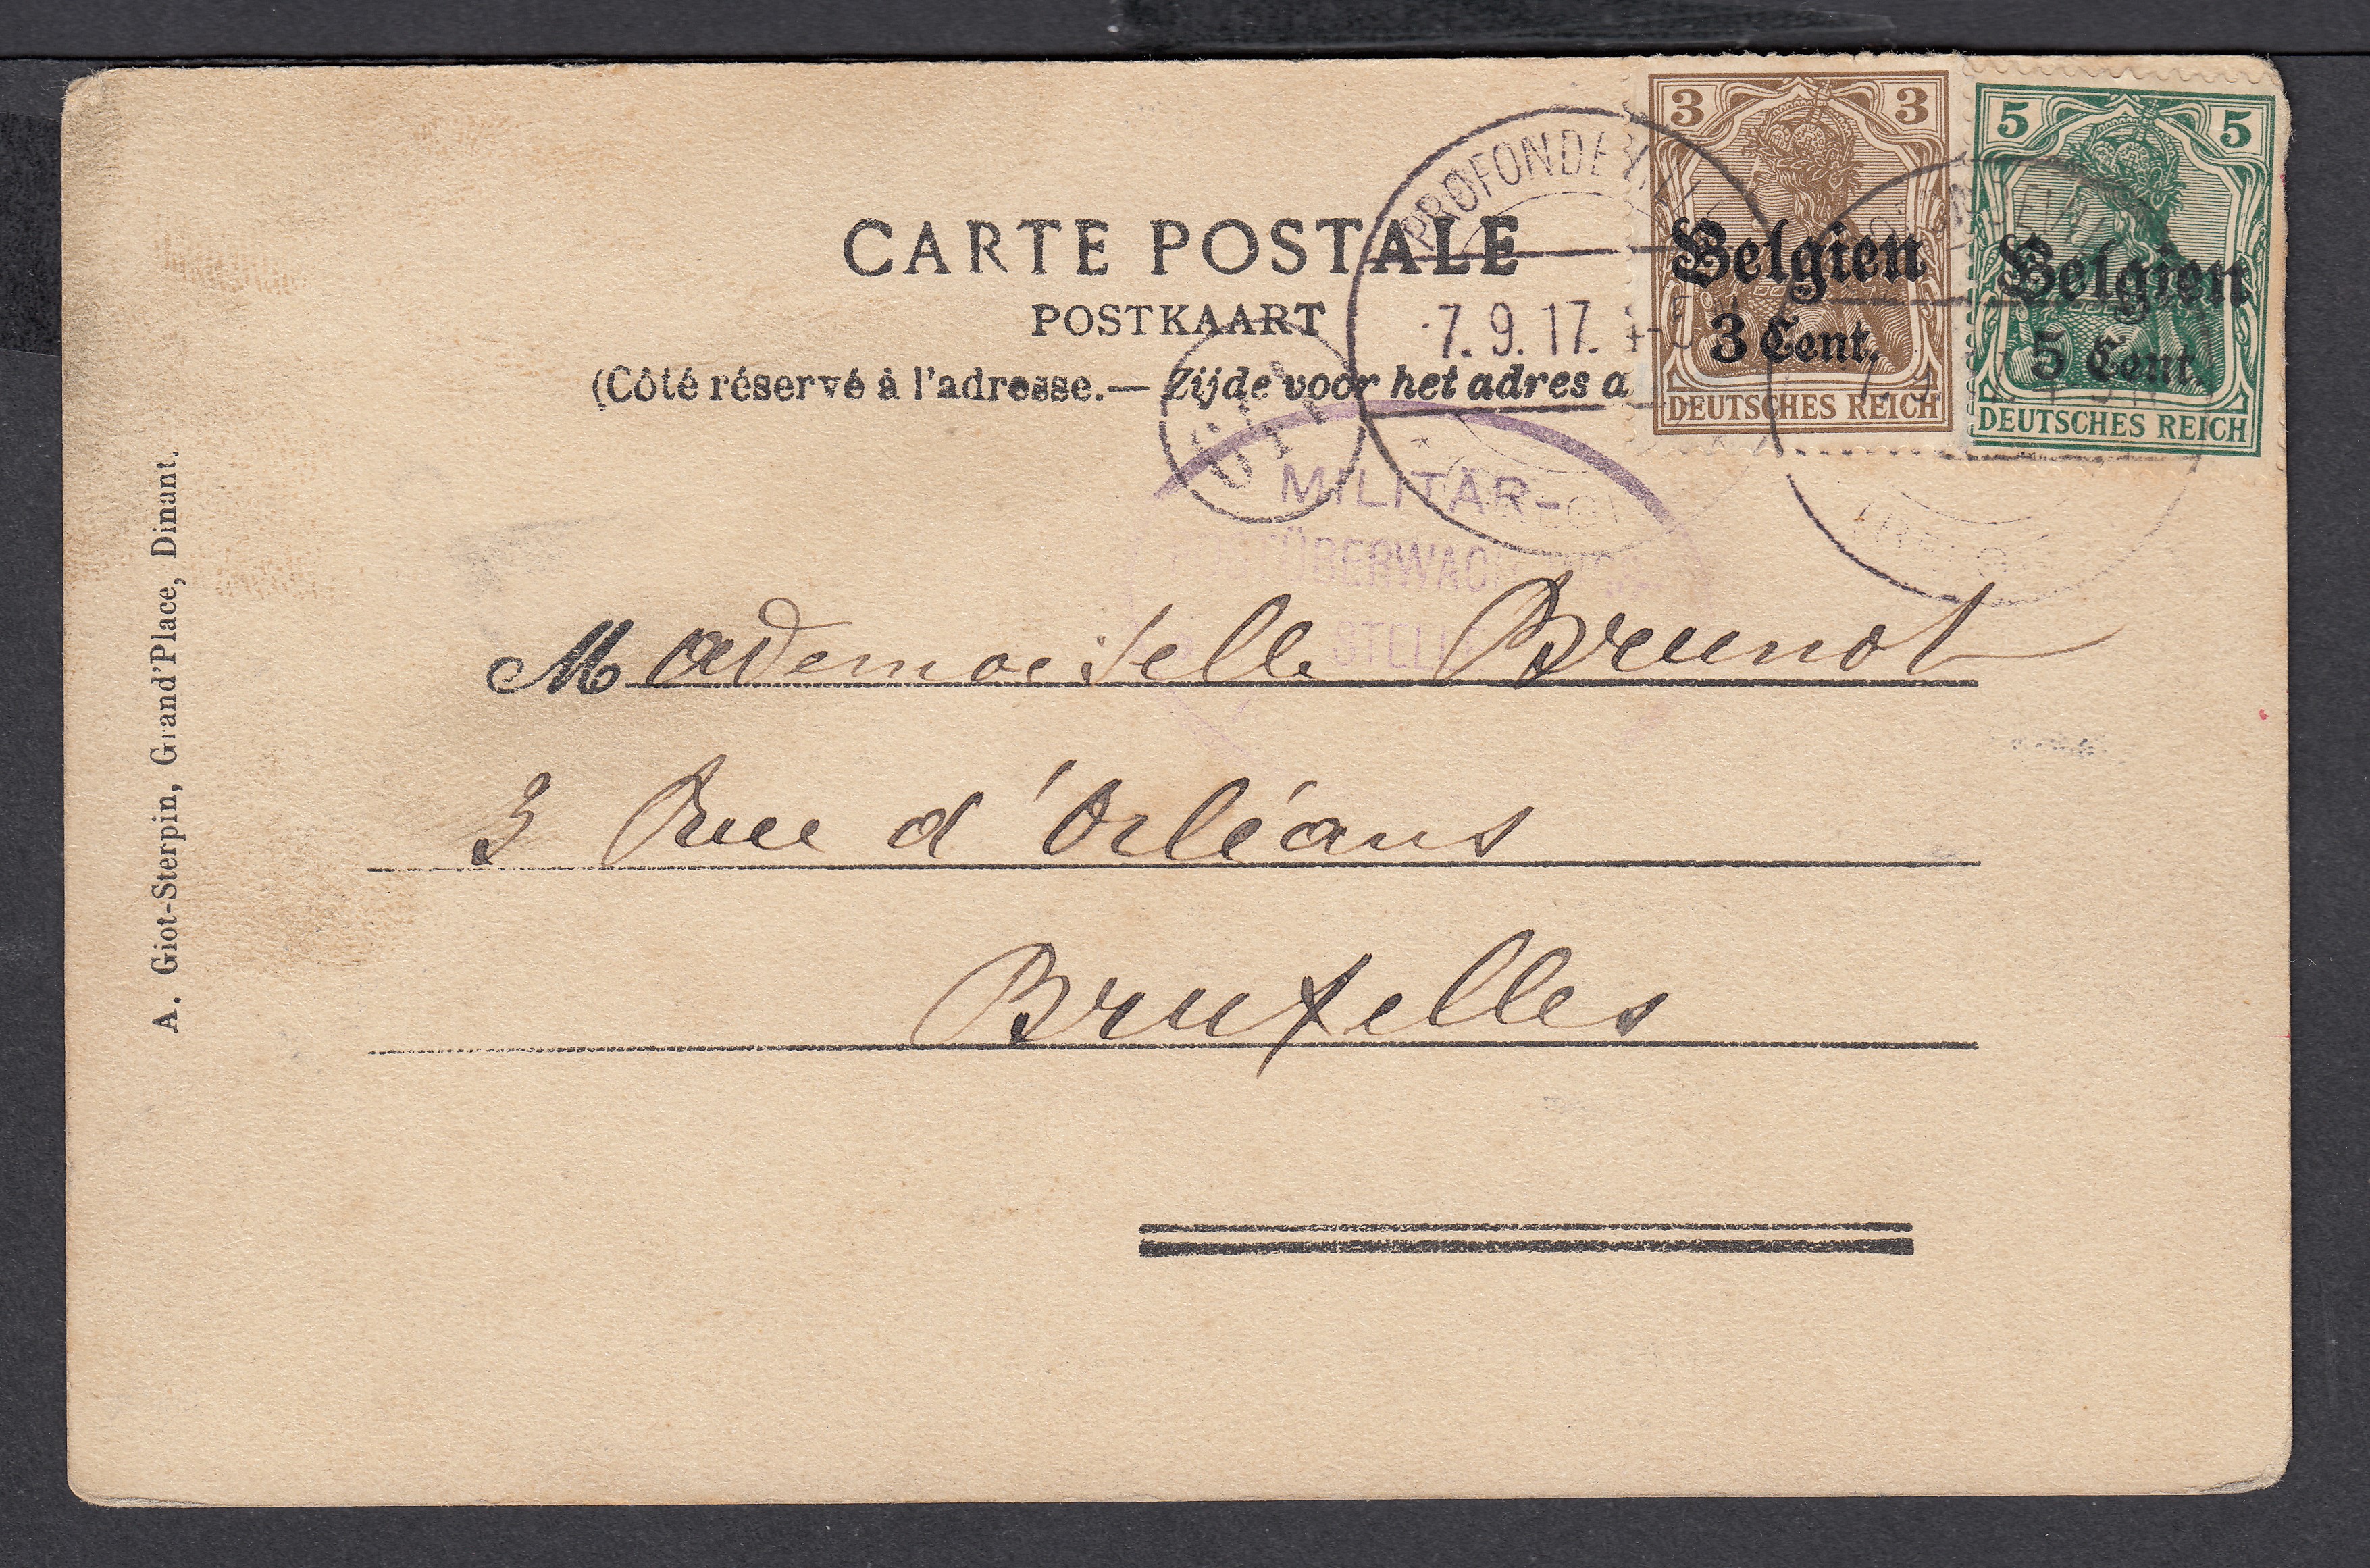 CARTE POSTALE
POSTKAART
(Côté réservé à l'adresse.— Zijde voor het adres a
PROFONDEVILLE
7.9.17.
3 3
Belgien
3 Cent.
DEUTSCHES REICH
5 5
Belgien
5 Cent.
DEUTSCHES REICH
MILITÄR-
POSTÜBERWACHUNGS
STELLE
Mademoiselle Brunot
3 Rue d'Orléans
Bruxelles
A. Giot-Sterpin, Grand'Place, Dinant.